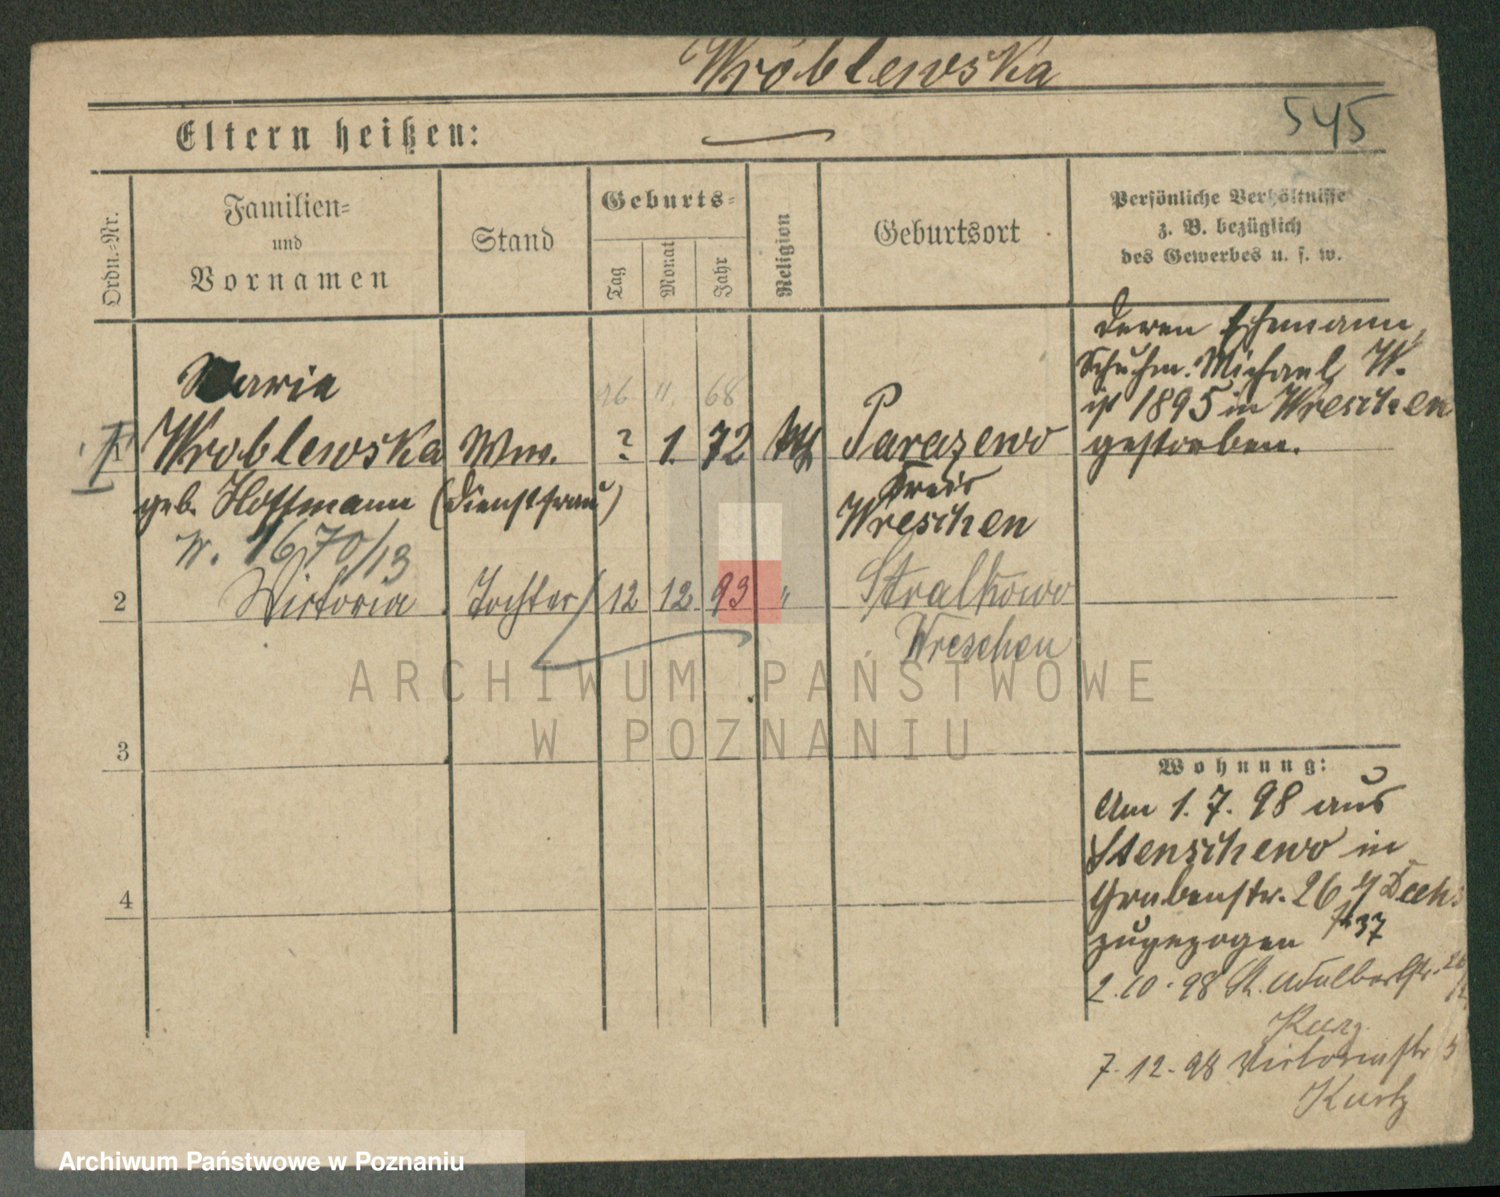 Wróblewska
545
Eltern heißen:
Ordn.-Nr.
Familien-
und
Vornamen
Stand
Geburts-
Tag
Monat
Jahr
Religion
Geburtsort
Persönliche Verhältnisse
z. B. bezüglich
des Gewerbes u. s. w.
Maria
26 11. 68
Wroblewska Ww. ? 1. 72 kth Parazewo
geb. Hoffmann (Dienstfrau)
Kreis
Wreschen
W. 1670/13
deren Ehemann,
Schuhm. Michael W.
ist 1895 in Wreschen
gestorben.
2 Victoria Tochter 12 12 93 " Stralkowo
Wreschen
3
4
Wohnung:
Am 1. 7. 98 aus
Stenschewo in
Grabenstr. 26
zugezogen
37
2. 10. 98 St. Adalbertstr.
7. 12. 98 Victoriastr
Kurtz
ARCHIWUM PAŃSTWOWE
W POZNANIU
Archiwum Państwowe w Poznaniu